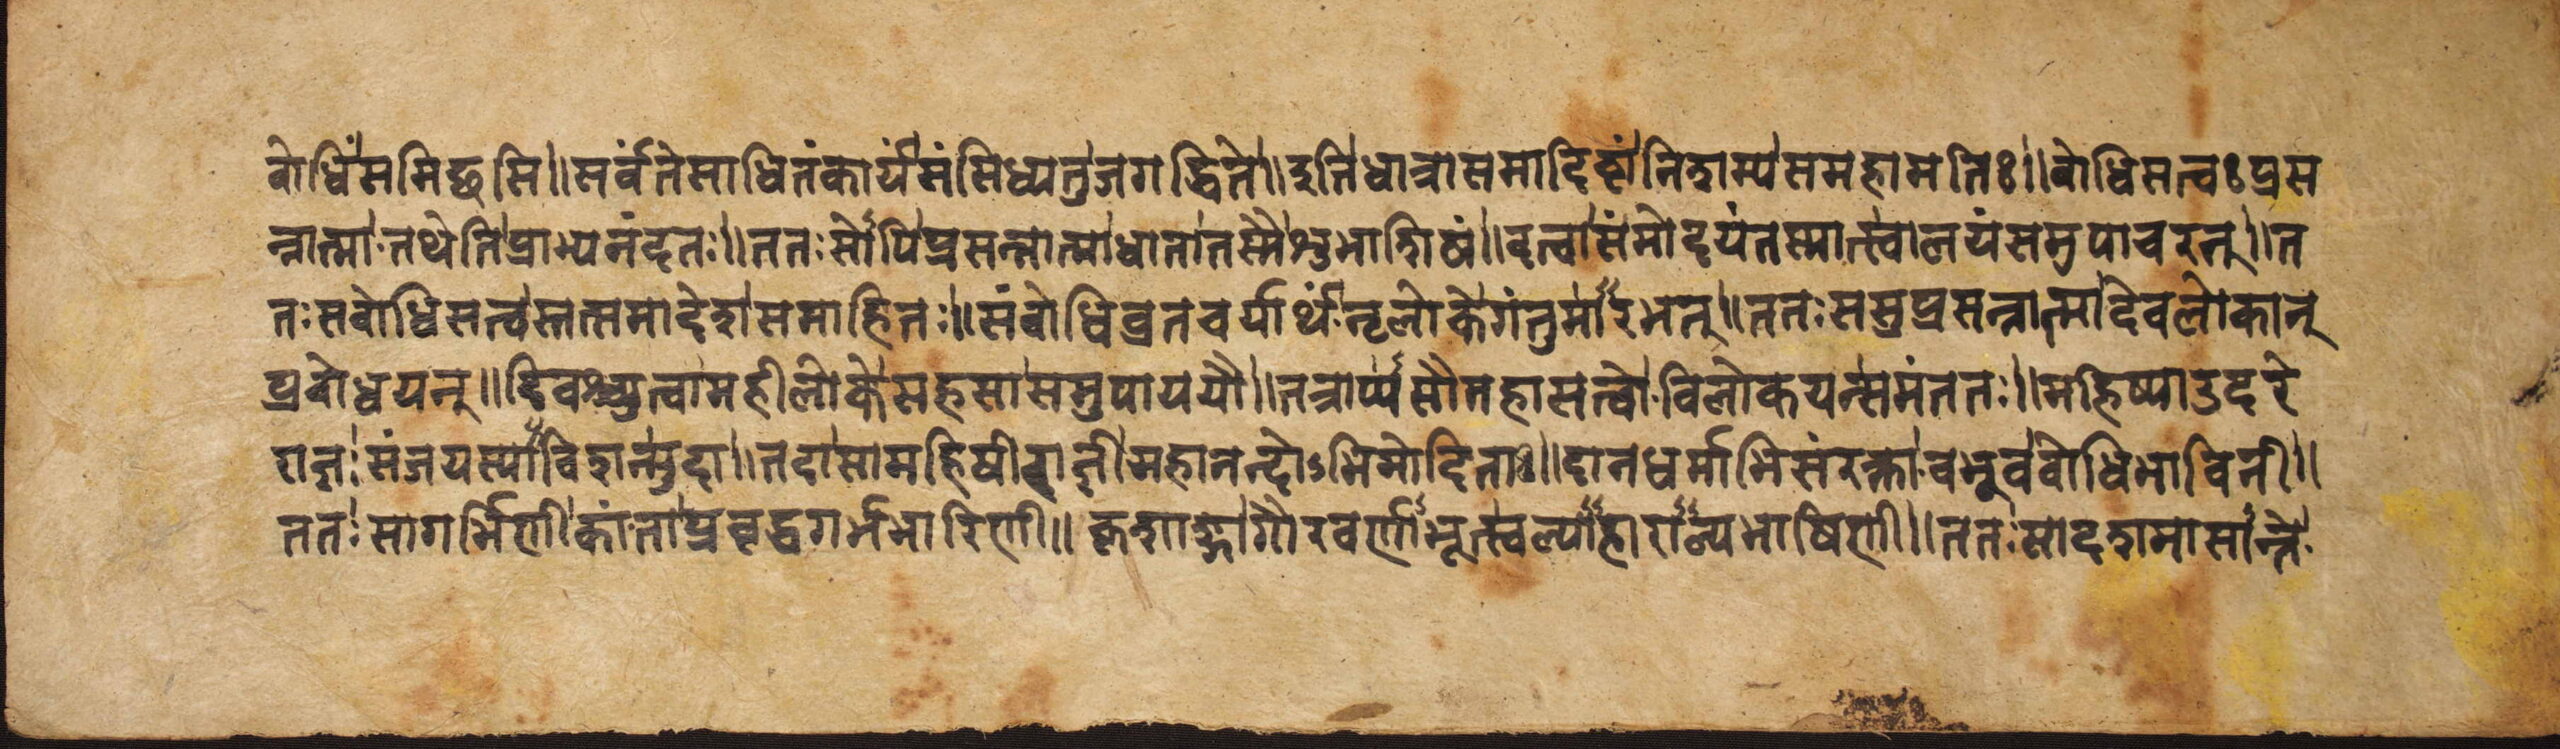 बोधिंसमिद्धसि॥सर्वंतेसाधितंकार्यंसंसिध्यतुजगद्धिते॥इतिधात्रासमादिष्टांनिशम्यसमहामतिः॥बोधिसत्वःप्रस
न्नात्मातथेतिप्राभ्यनंदत॥ततःसोपिप्रसन्नात्माधातातस्मैशुभाशिषं॥दत्वासंमोदयंतस्मात्स्वालयंसमुपाचरत्॥त
तःसबोधिसत्वस्तत्समादेशसमाहितः॥संबोधिव्रतचर्यार्थंनृलोकेगंतुमारभत्॥ततःससुप्रसन्नात्मादेवलोकान्
प्रबोधयन्॥दिवश्च्युत्वामहीलोकेसहसासमुपाययौ॥तत्राप्यसौमहासत्वोविलोकयन्समंततः॥महिष्याउदरे
राज्ञःसंजयस्याविशन्मुदा॥तदासामहिषीराज्ञीमहानन्दोऽभिमोदिता॥दानधर्माभिसंरक्ताबभूवबोधिभाविनी॥
ततःसागर्भिणीकांताप्रवृद्धगर्भभारिणी॥कृशाङ्गागौरवर्णाभूत्स्वल्पाहाराल्पभाषिणी॥ततःसादशमासान्ते